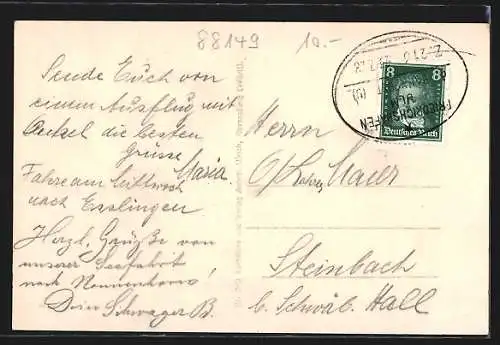 88149 10.-
Sende Euch von
einem Ausflug mit
Onkel die besten
Grüsse
Maria.
Fahre am Mittwoch
nach Esslingen
Herzl. Grüße von
unserer Seefahrt
nach Nonnenhorn!
Dein Schwager B.
Z. 216
8 8
FRIEDRICHSHAFEN
ULM
Deutsches Reich
Herrn
Maier
Steinbach
b. Schwäb. Hall